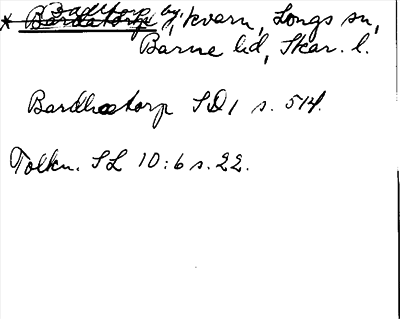 * Badstorp by, kvarn, Longs sn,
Barne hd, Skar. l.
Bardhastorp SD 1 s. 514.
Tolkn. SL 10:6 s. 22.